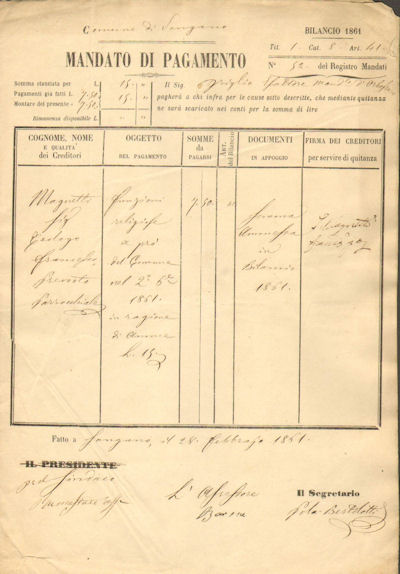 Comune di Sangano
BILANCIO 1861
MANDATO DI PAGAMENTO
Tit. 1 Cat. 8 Art. 41
N° 52 del Registro Mandati
Somma stanziata per L. 15
Pagamenti già fatti L. 7.50 15
Montare del presente 7.50
Rimanenza disponibile L.
Il Sig.
pagherà a chi infra per le cause sotto descritte, che mediante quitanza
ne sarà scaricato nei conti per la somma di lire
COGNOME, NOME
E QUALITÀ
dei Creditori
OGGETTO
DEL PAGAMENTO
SOMME
da
PAGARSI
ART.
del Bilancio
DOCUMENTI
IN APPOGGIO
FIRMA DEI CREDITORI
per servire di quitanza
Magnetti
Sig
Teologo
Francesco
Prevosto
Parrochiale
Funzioni
religiose
a prò
del Comune
nel 2°
1861
in ragione
di annue
L. 15
7.50
Somma
Ammessa
in
Bilancio
1861.
Fatto a Sangano, il 28 Febbrajo 1861.
IL PRESIDENTE
pel Sindaco
L'Assessore
Il Segretario